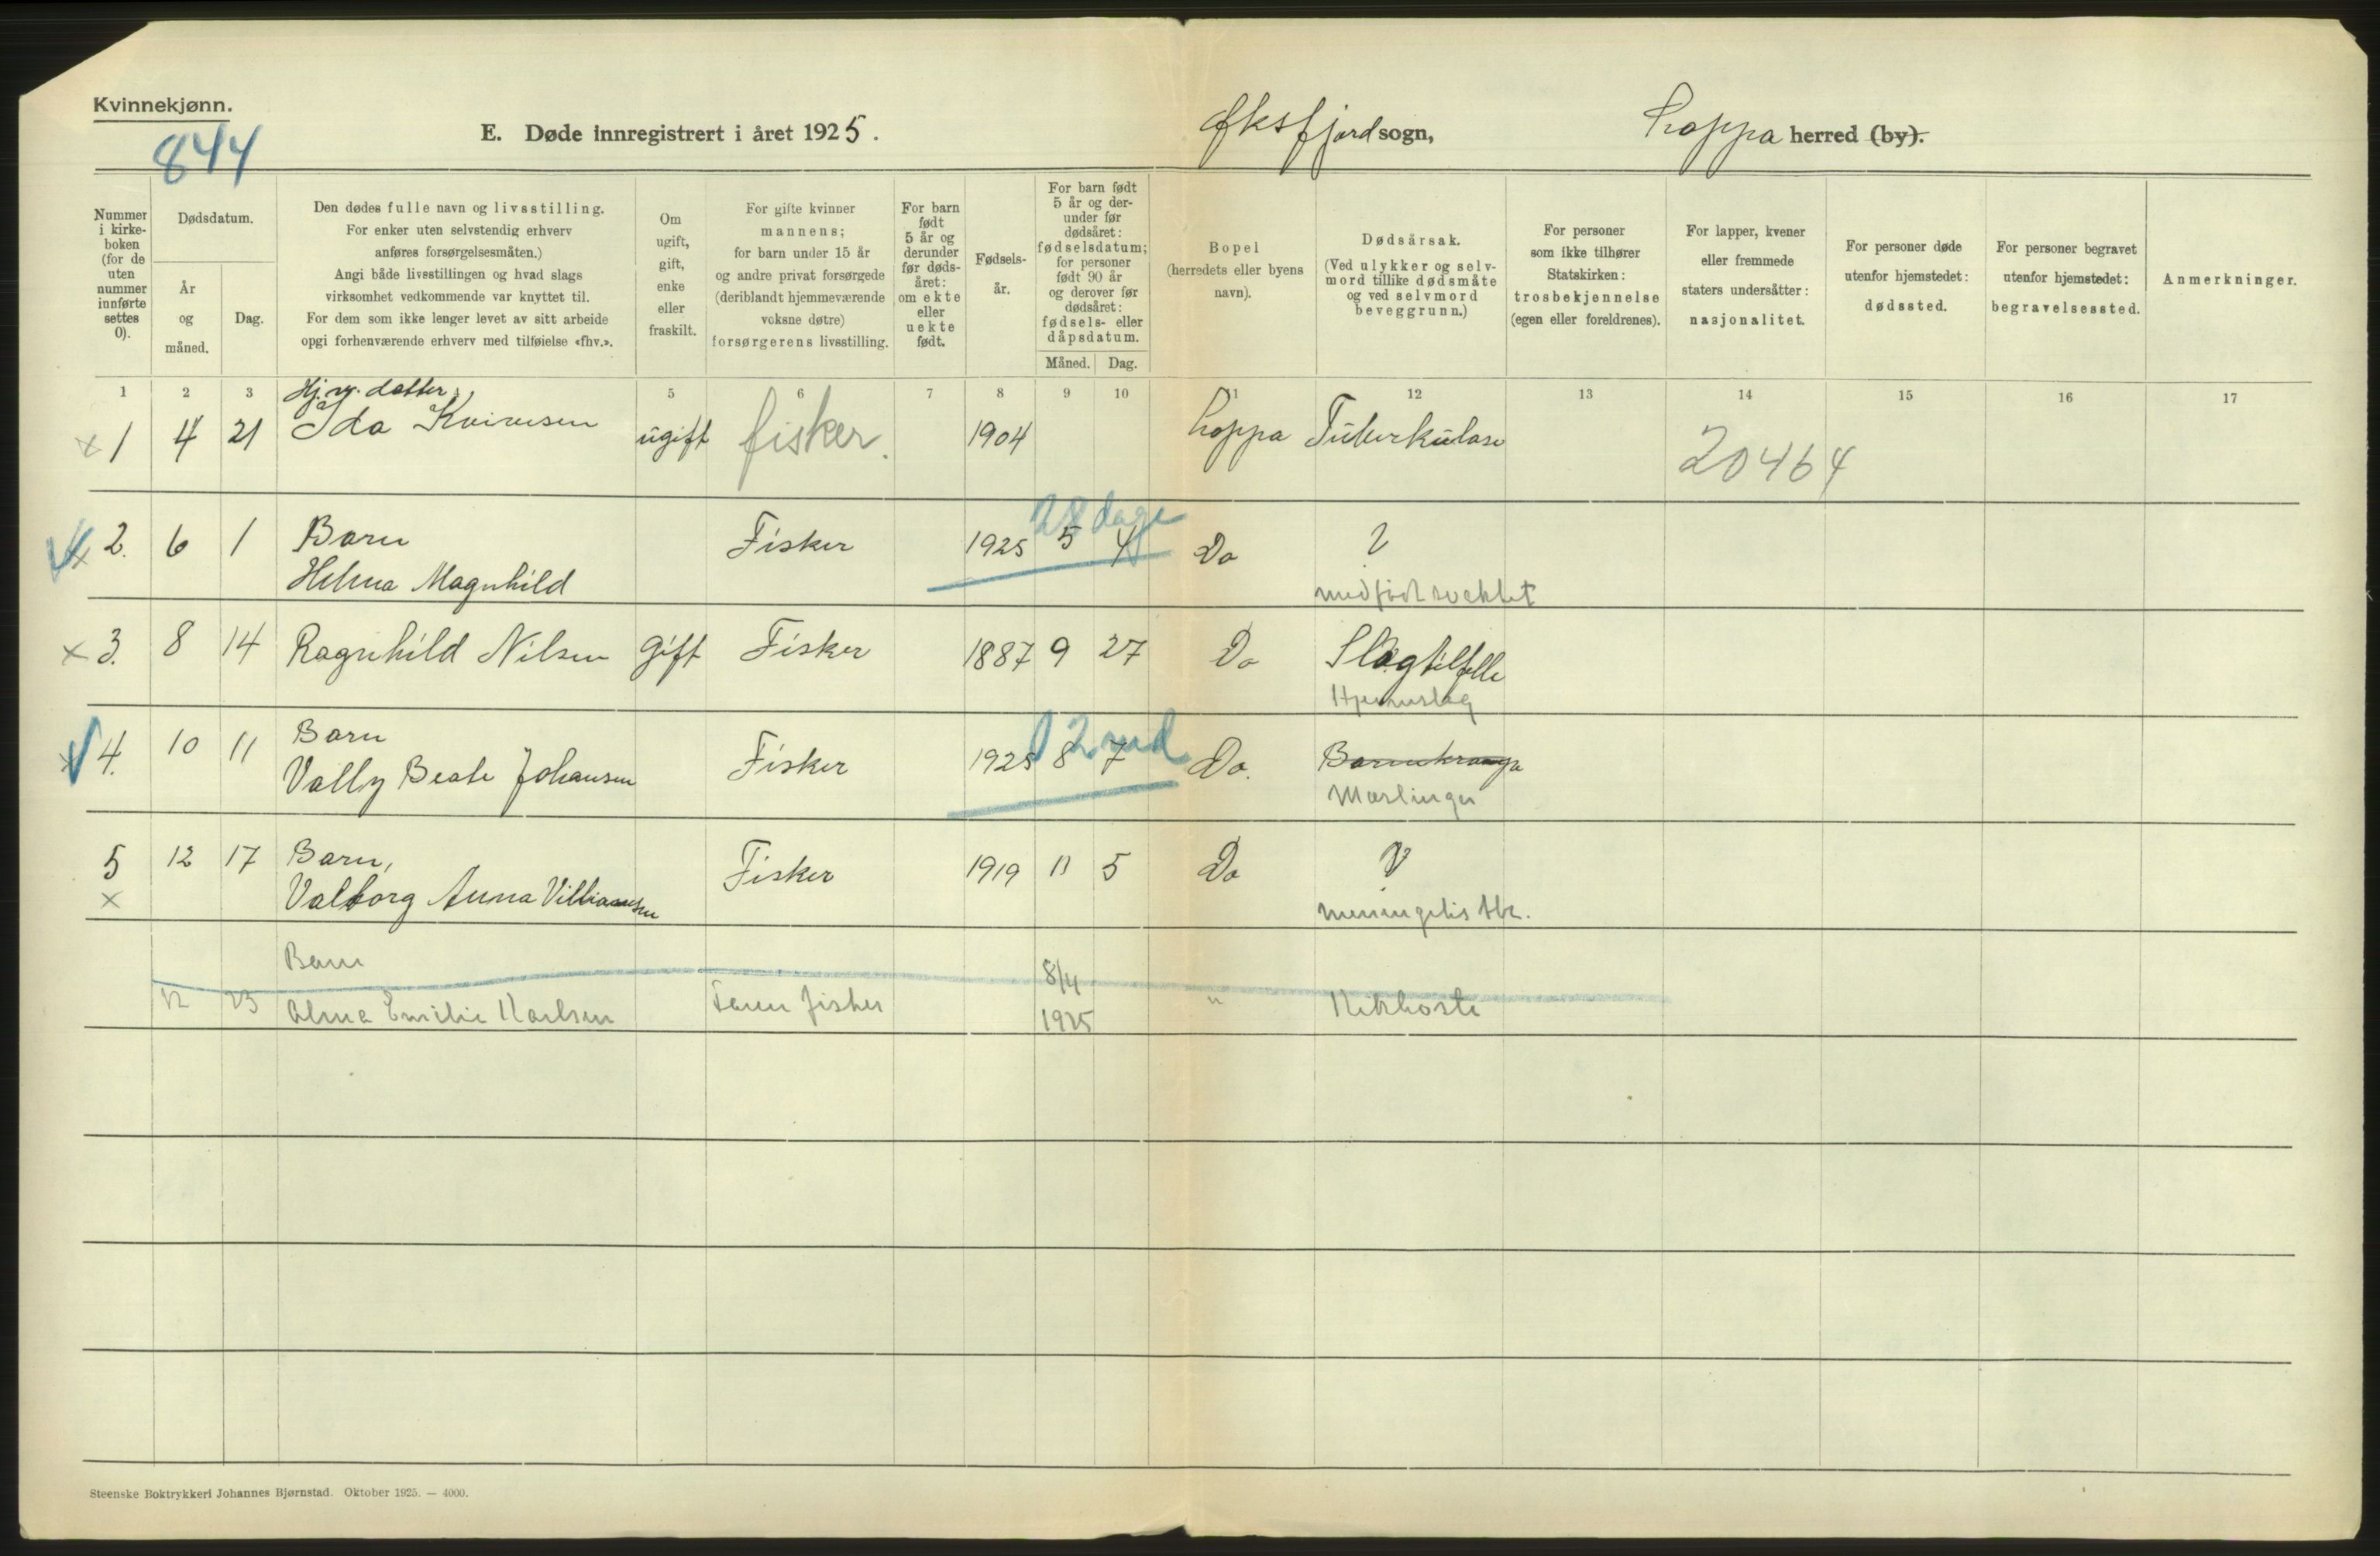 Kvinnekjønn.
844
E. Døde innregistrert i året 1925.
Øksfjord sogn,
Loppa herred (by).
Nummer i kirke-boken (for de uten nummer innførte settes 0).
Dødsdatum.
År og måned.
Dag.
Den dødes fulle navn og livsstilling.
For enker uten selvstendig erhverv
anføres forsørgelsesmåten.)
Angi både livsstillingen og hvad slags
virksomhet vedkommende var knyttet til.
For dem som ikke lenger levet av sitt arbeide
opgi forhenværende erhverv med tilføielse «fhv.».
Om ugift, gift, enke eller fraskilt.
For gifte kvinner
mannens;
for barn under 15 år
og andre privat forsørgede
(deriblandt hjemmeværende
voksne døtre)
forsørgerens livsstilling.
For barn født 5 år og derunder før døds-året: om ekte eller uekte født.
Fødsels-år.
For barn født 5 år og der-under før dødsåret: fødselsdatum; for personer født 90 år og derover før dødsåret: fødsels- eller dåpsdatum.
Måned. Dag.
Bopel
(herredets eller byens
navn).
Dødsårsak.
(Ved ulykker og selv-
mord tillike dødsmåte
og ved selvmord
beveggrunn.)
For personer
som ikke tilhører
Statskirken:
trosbekjennelse
(egen eller foreldrenes).
For lapper, kvener
eller fremmede
staters undersåtter:
nasjonalitet.
For personer døde
utenfor hjemstedet:
dødssted.
For personer begravet
utenfor hjemstedet:
begravelsessted.
Anmerkninger.
1 2 3 5 6 7 8 9 10 11 12 13 14 15 16 17
Hj. v. datter
x 1 4 21 Ida ugift fisker. 1904 Loppa Tuberkulose 20464
28 dage
x 2. 6 1 Barn Fisker 1925 5 4 Do ?
Helma Magnhild medfødt svakhet
x 3. 8 14 Ragnhild Nilsen Gift Fisker 1887 9 27 Do Slagtilfelle
Hjerneslag
2 md
4. 10 11 Barn Fisker 1925 8 7 Do.
Vally Beate Johansen Mæslinger
5 12 17 Barn, Fisker 1919 11 5 Do ?
x Valborg Anna meningitis tbc.
Barn 8/4
12 23 Alma Emilie Karlsen Faren fisker 1925 " Kikhoste
Steenske Boktrykkeri Johannes Bjørnstad. Oktober 1925. — 4000.